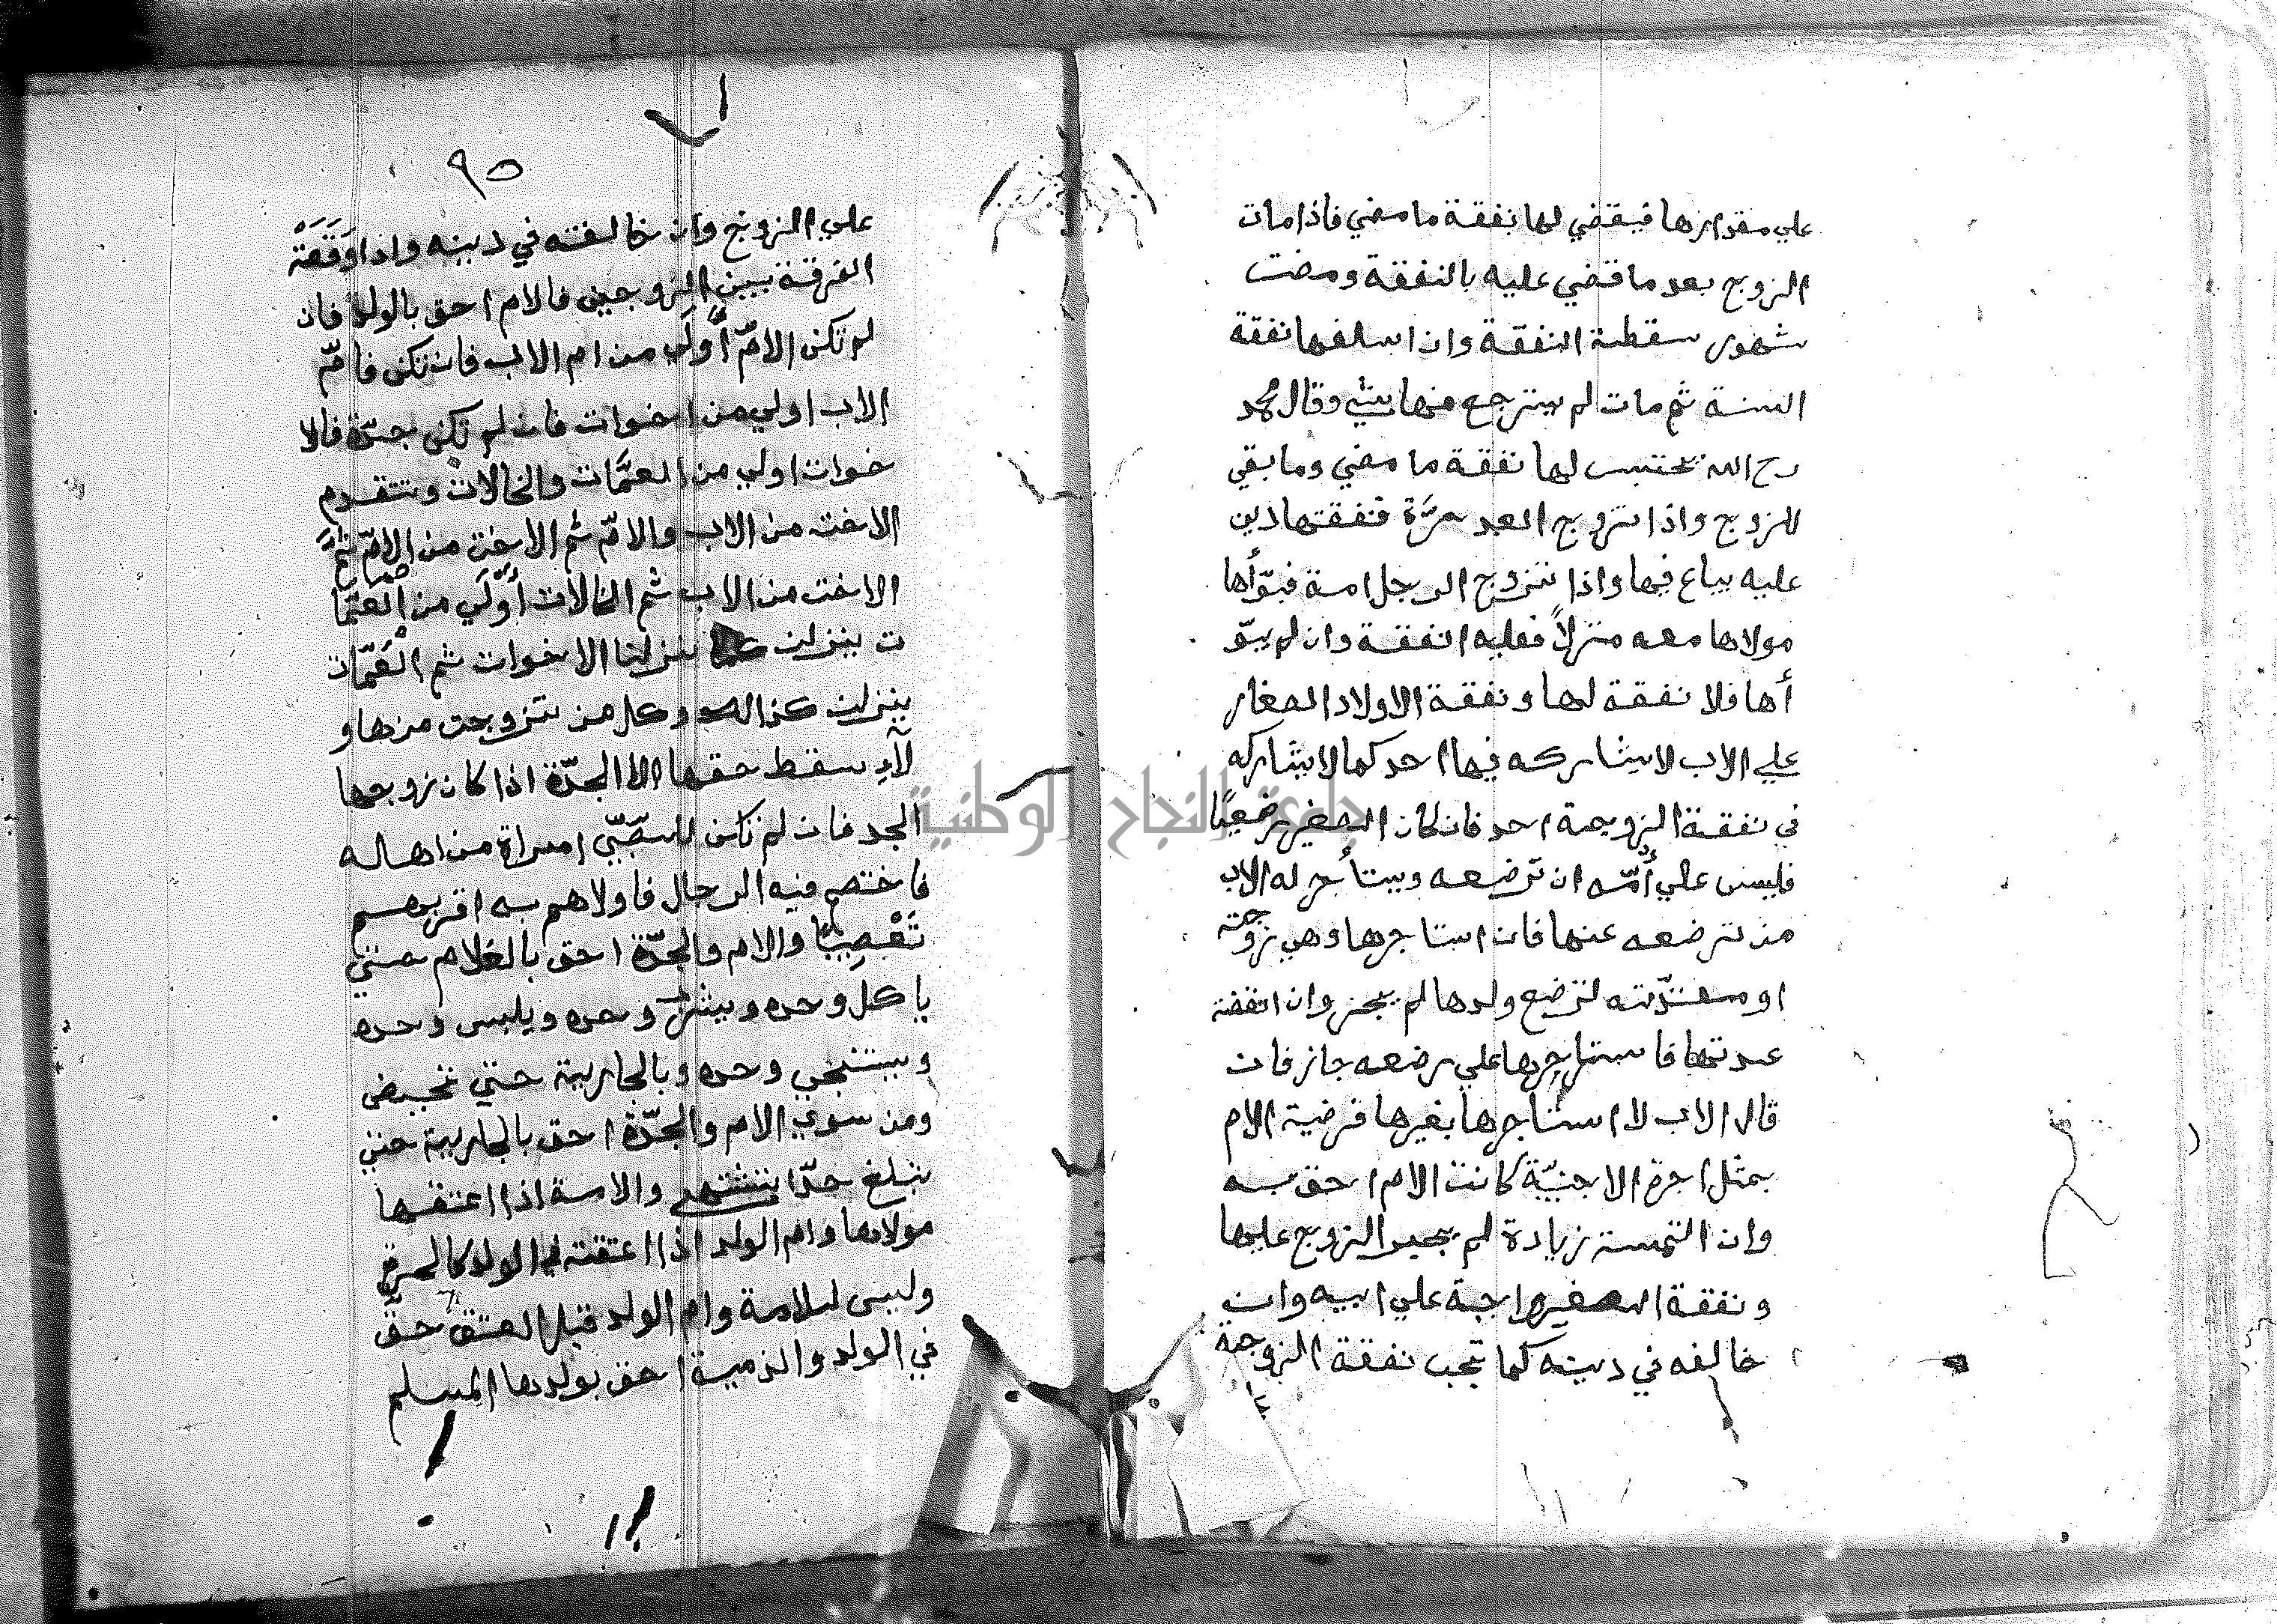 علي مقدارها فيقضي لها بنفقة ما مضي فاذا مات
الزوج بعد ما قضي عليه بالنفقة ومضت
شهور سقطة النفقة وان اسلفها نفقة
السنة ثم مات لم يسترجع منها بشي وقال محمد
رح الله يحتبس لها نفقة ما مضي وما بقي
للزوج واذا تزوج العبد حرَّة فنفقتها دين
عليه يباع فيها واذا تزوج الرجل امة فبوّأها
مولاها معه منزلاً فعليه النفقة وان لم يبوّ
أها فلا نفقة لها ونفقة الاولاد الصغار
علي الاب لا يشاركه فيها احد كما لا يشاركه
في نفقة الزوجة احد فان كان الصغير رضيعًا
فليس علي أُمّه ان ترضعه ويستأجر له الاب
من ترضعه عنها فان استاجرها وهي زوجته
او معتدّته لترضع ولدها لم يجز وان انقضة
عدتها فاستاجرها علي رضعه جاز فان
قال الاب لا استاجرها بغيرها فرضية الام
بمثل اجرة الاجنبيّة كانت الام احق به
وان التمسة زيادة لم يجبر الزوج عليها
ونفقة الصغير واجبة علي ابيه وان
خالفه في دينه كما تجب نفقة الزوجة
٩٥
علي الزوج وان خالفته في دينه واذا وَقَعَتْ
الفرقة بين الزوجين فالام احق بالولد فان
لم تكن الامّ أولَي من ام الاب فان تكن فامّ
الاب اولي من اخوات فان لم تكن جدّة فالا
خوات اولي من العمَّات والخالات وتتقدم
الاخت من الاب والامّ ثم الاخت من الامّ ثمَّ
الاخت من الاب ثم الخالات أَوْلَي من العمّا
ت ينزلن كما نزلنا الاخوات ثم الْعَمّات
ينزلن كذالك وكل من تزوجت من هاو
لآءِ سقط حقها الا الجدّة اذا كان زوجها
الجد فان لم تكن للصَّبيّ امراة من اهله
فاختصم فيه الرجال فاولاهم به اقربهم
تَعْصِيبًا والام والجدّة احق بالغلام حتي
ياكل وحده ويشرب وحده ويلبس وحده
ويستنجي وحده وبالجارية حتي تحيض
ومن سوي الام والجدّة احق بالجارية حتي
تبلغ حدّا تشتهي والامة اذا اعتقها
مولاها وام الولد اذا اعتقت في الولد كالحرة
وليس للامة وام الولد قبل العتق حقّ
في الولد والذمية احق بولدها المسلم
جامعة النجاح الوطنية